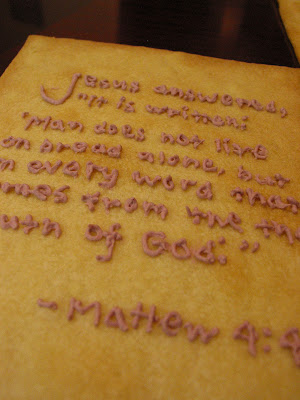 Jesus answered,
"It is written:
"Man does not live
on bread alone, but
on every word that
comes from the
mouth of God.""
~Matthew 4:4